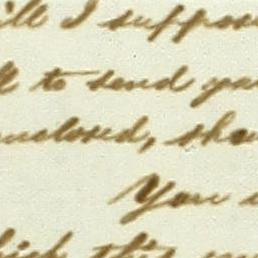 ill I suppose
ll to send you
enclosed, sho
You
hich this